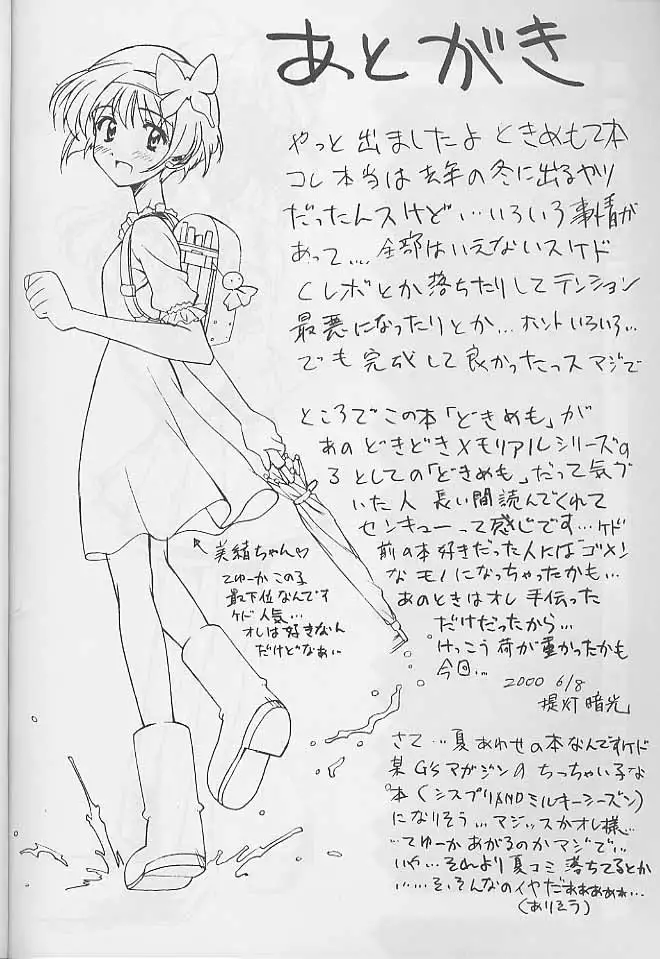 あとがき
やっと出ましたよ ときめもて本
コレ本当は去年の冬に出るやり
だったんスけど…いろいろ事情が
あって…。全部はいえないスケド
Cレボとか落ちたりしてテンション
最悪になったりとか…ホントいろいろ…
でも完成して良かったっスマジで
ところでこの本「どきめも」が
あのどきどきメモリアルシリーズの
3としての「どきめも」だって気づ
いた人 長い間読んでくれて
センキューって感じです…ケド
前の本好きだった人には「ゴメン」
なモノになっちゃったかも…
あのときはオレ 手伝った
だけだったから…
けっこう荷が重かったかも
今回…
2000 6/8
提灯暗光
美緒ちゃん♡
てゆーかこの子
最下位なんです
ケド人気…
オレは好きなん
だけどなぁ…
さて…夏あわせの本なんですケド
某G'sマガジンのちっちゃい子な
本(シスプリANDミルキーシーズン)
になりそう…マジッスかオレ様…
…てゆーかあがるのかマジで…
いや…そんより夏コミ落ちてるとか
……そ、そんなのイヤだぁぁぁぁぁ…
(ありそう)